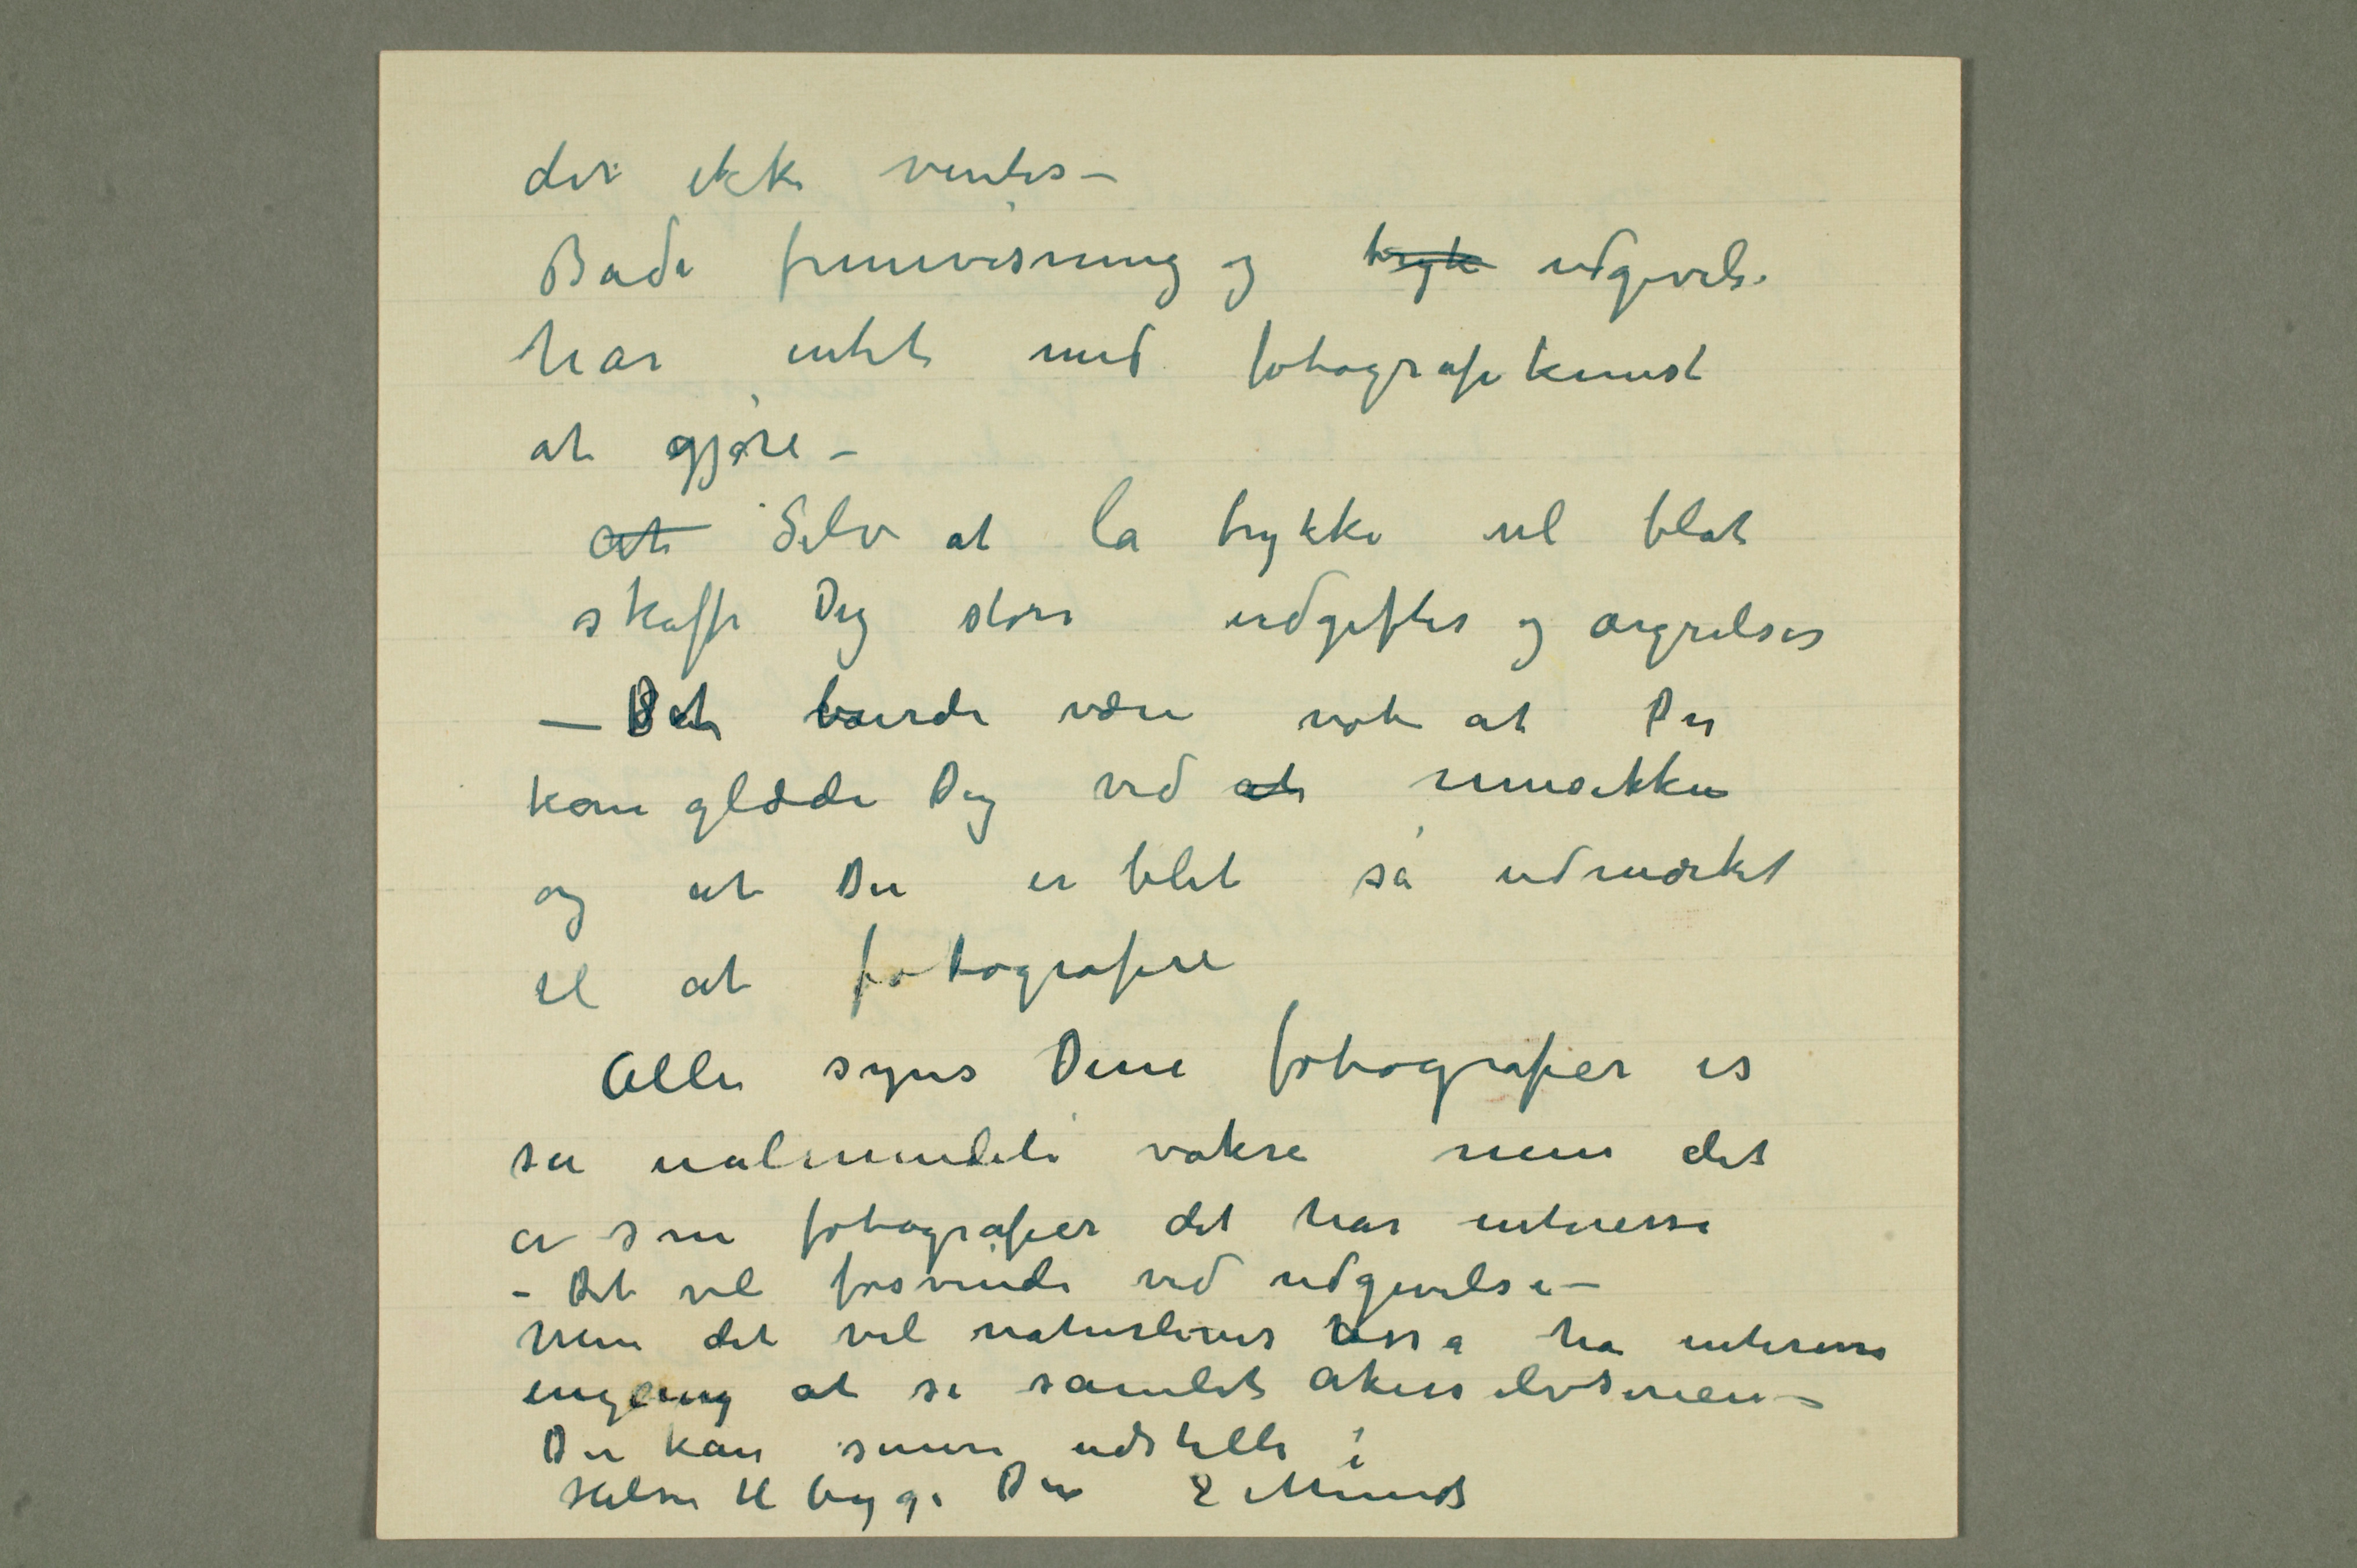 der ikke ventes –
Både fremvisning og tryk udgivelse
har intet med fotografikunst
at gjøre –
at Selv at la trykke vil blot
skaffe Dig store udgifter og ærgrelser
– Det burde være nok at Du
kan glæde Dig ved at musikken
og at Du er blet så udmærket
til at fotografere
Alle synes Dine fotografier er
så ualmindeli vakre men det
er som fotografier det har interesse
– Det vil forsvinde ved udgivelse –
Men det vil naturligvis også ha interesse
engang at se samlet Akerselvserien –
Du kan senere udstille i
Hilsen til begge Din E Munch